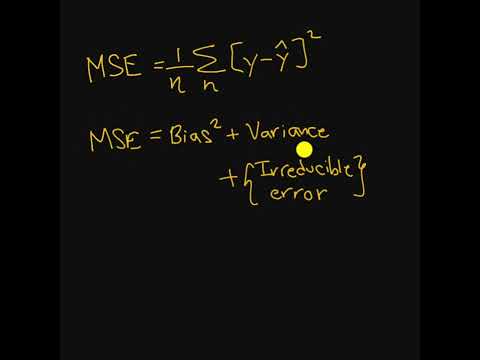 MSE = 1/n Σn [y-ŷ]²
MSE = Bias² + Variance
+ {Irreducible
error}